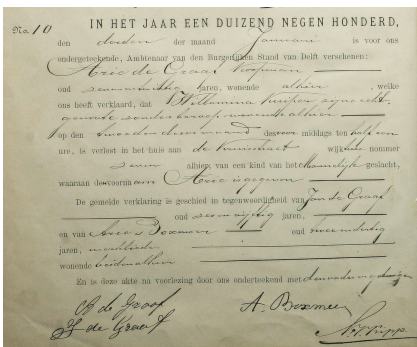 No. 10
IN HET JAAR EEN DUIZEND NEGEN HONDERD,
den derden der maand Januari is voor ons
ondergeteekende, Ambtenaar van den Burgerlijken Stand van Delft verschenen:
Arie de Graaf Koopman
oud zevenentwintig jaren, wonende alhier, welke
ons heeft verklaard, dat Willemina Kuiper zijne echt-
genoote zonder beroep wonende alhier
op den tweeden dezer maand des voor middags ten half een
ure, is verlost in het huis aan de wijk nummer
zeven alhier, van een kind van het Mannelijk geslacht,
waaraan de voornaam Arie is gegeven
De gemelde verklaring is geschied in tegenwoordigheid van Jan de Graaf
oud zeven vijftig jaren,
en van Arie Boxmeer oud
jaren,
wonende beiden alhier
En is deze akte na voorlezing door ons onderteekend met den vader en getuigen
A de Graaf
J de Graaf
A. Boxmeer